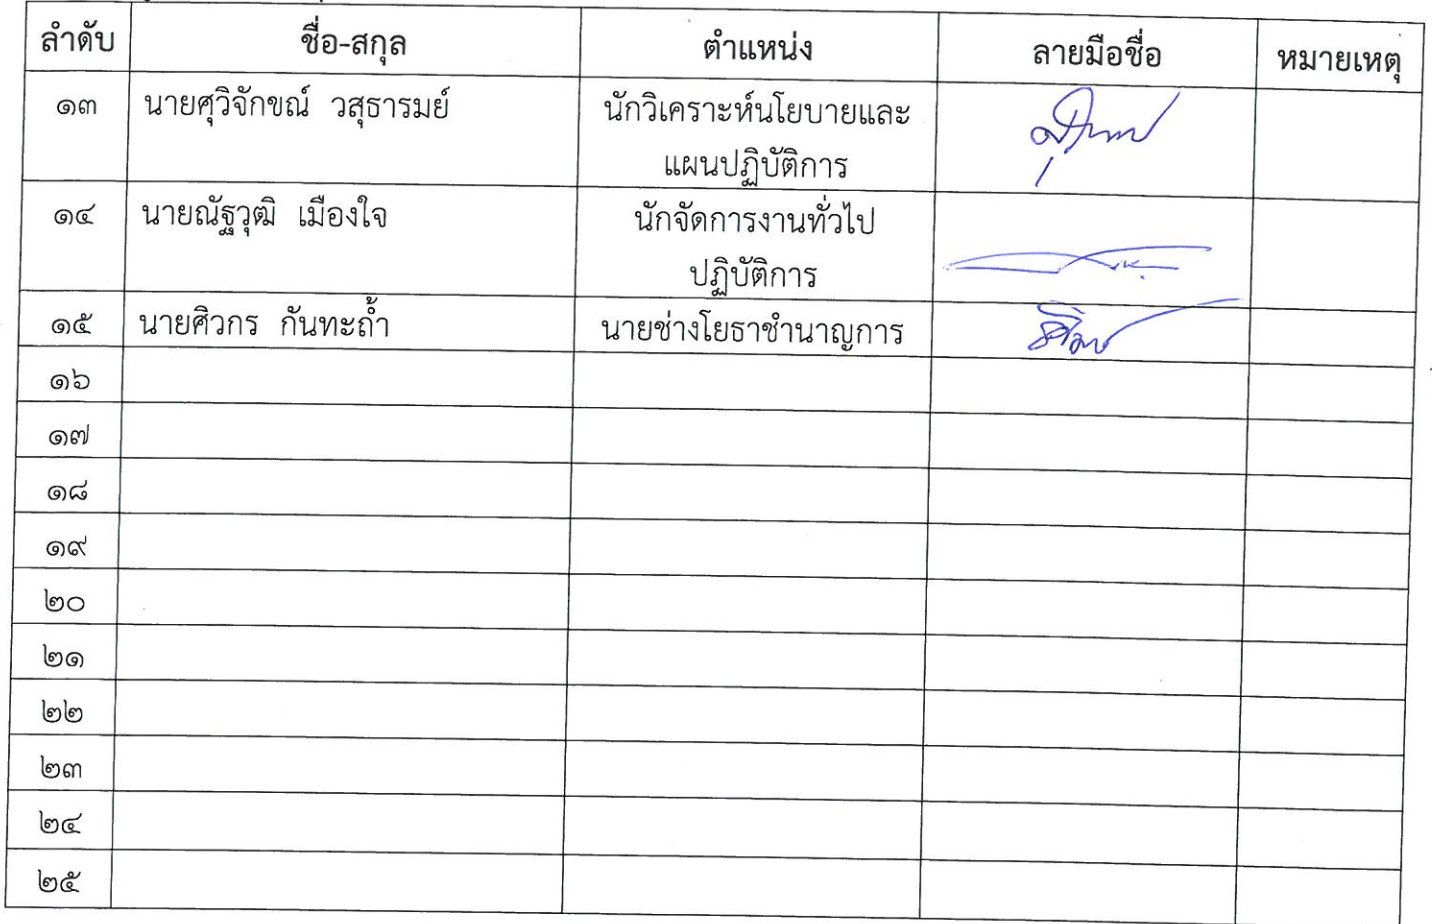 ลำดับ ชื่อ-สกุล ตำแหน่ง ลายมือชื่อ หมายเหตุ
๑๓ นายศุวิจักขณ์ วสุธารมย์ นักวิเคราะห์นโยบายและ
แผนปฏิบัติการ
๑๔ นายณัฐวุฒิ เมืองใจ นักจัดการงานทั่วไป
ปฏิบัติการ
๑๕ นายศิวกร กันทะถ้ำ นายช่างโยธาชำนาญการ
๑๖
๑๗
๑๘
๑๙
๒๐
๒๑
๒๒
๒๓
๒๔
๒๕